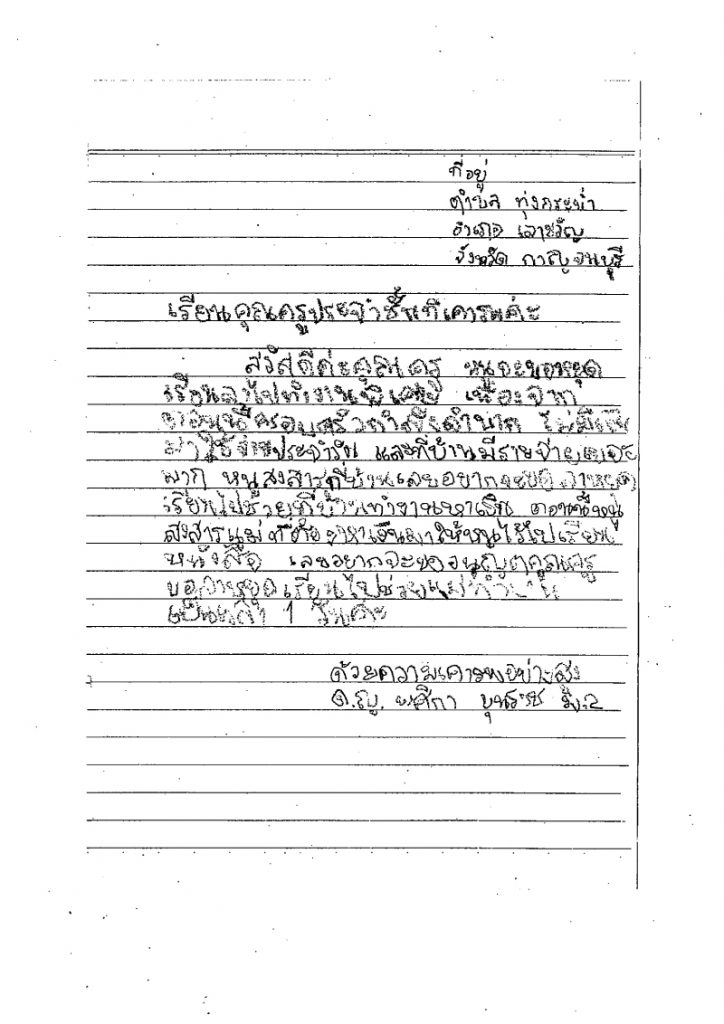 ที่อยู่
ตำบล ทุ่งกระบ่ำ
อำเภอ เลาขวัญ
จังหวัด กาญจนบุรี
เรียนคุณครูประจำชั้นที่เคารพค่ะ
สวัสดีค่ะคุณครู หนูจะขอหยุด
เรียนลาไปทำงานพิเศษ เนื่องจาก
ครอบครัวกำลังลำบาก ไม่มีเงิน
มาใช้จ่ายประจำวัน และที่บ้านมีรายจ่ายเยอะ
มาก หนูสงสารที่บ้านเลยอยากจะขอลาหยุด
เรียนไปช่วยที่บ้านทำงานหาเงิน
สงสารแม่ที่ต้องหาเงินมาให้หนูไว้ไปเรียน
หนังสือ เลยอยากจะขออนุญาตคุณครู
ขอลาหยุดเรียนไปช่วยแม่ทำงาน
เป็นเวลา 1 วันค่ะ
ด้วยความเคารพอย่างสูง
ด.ญ. บุนราช